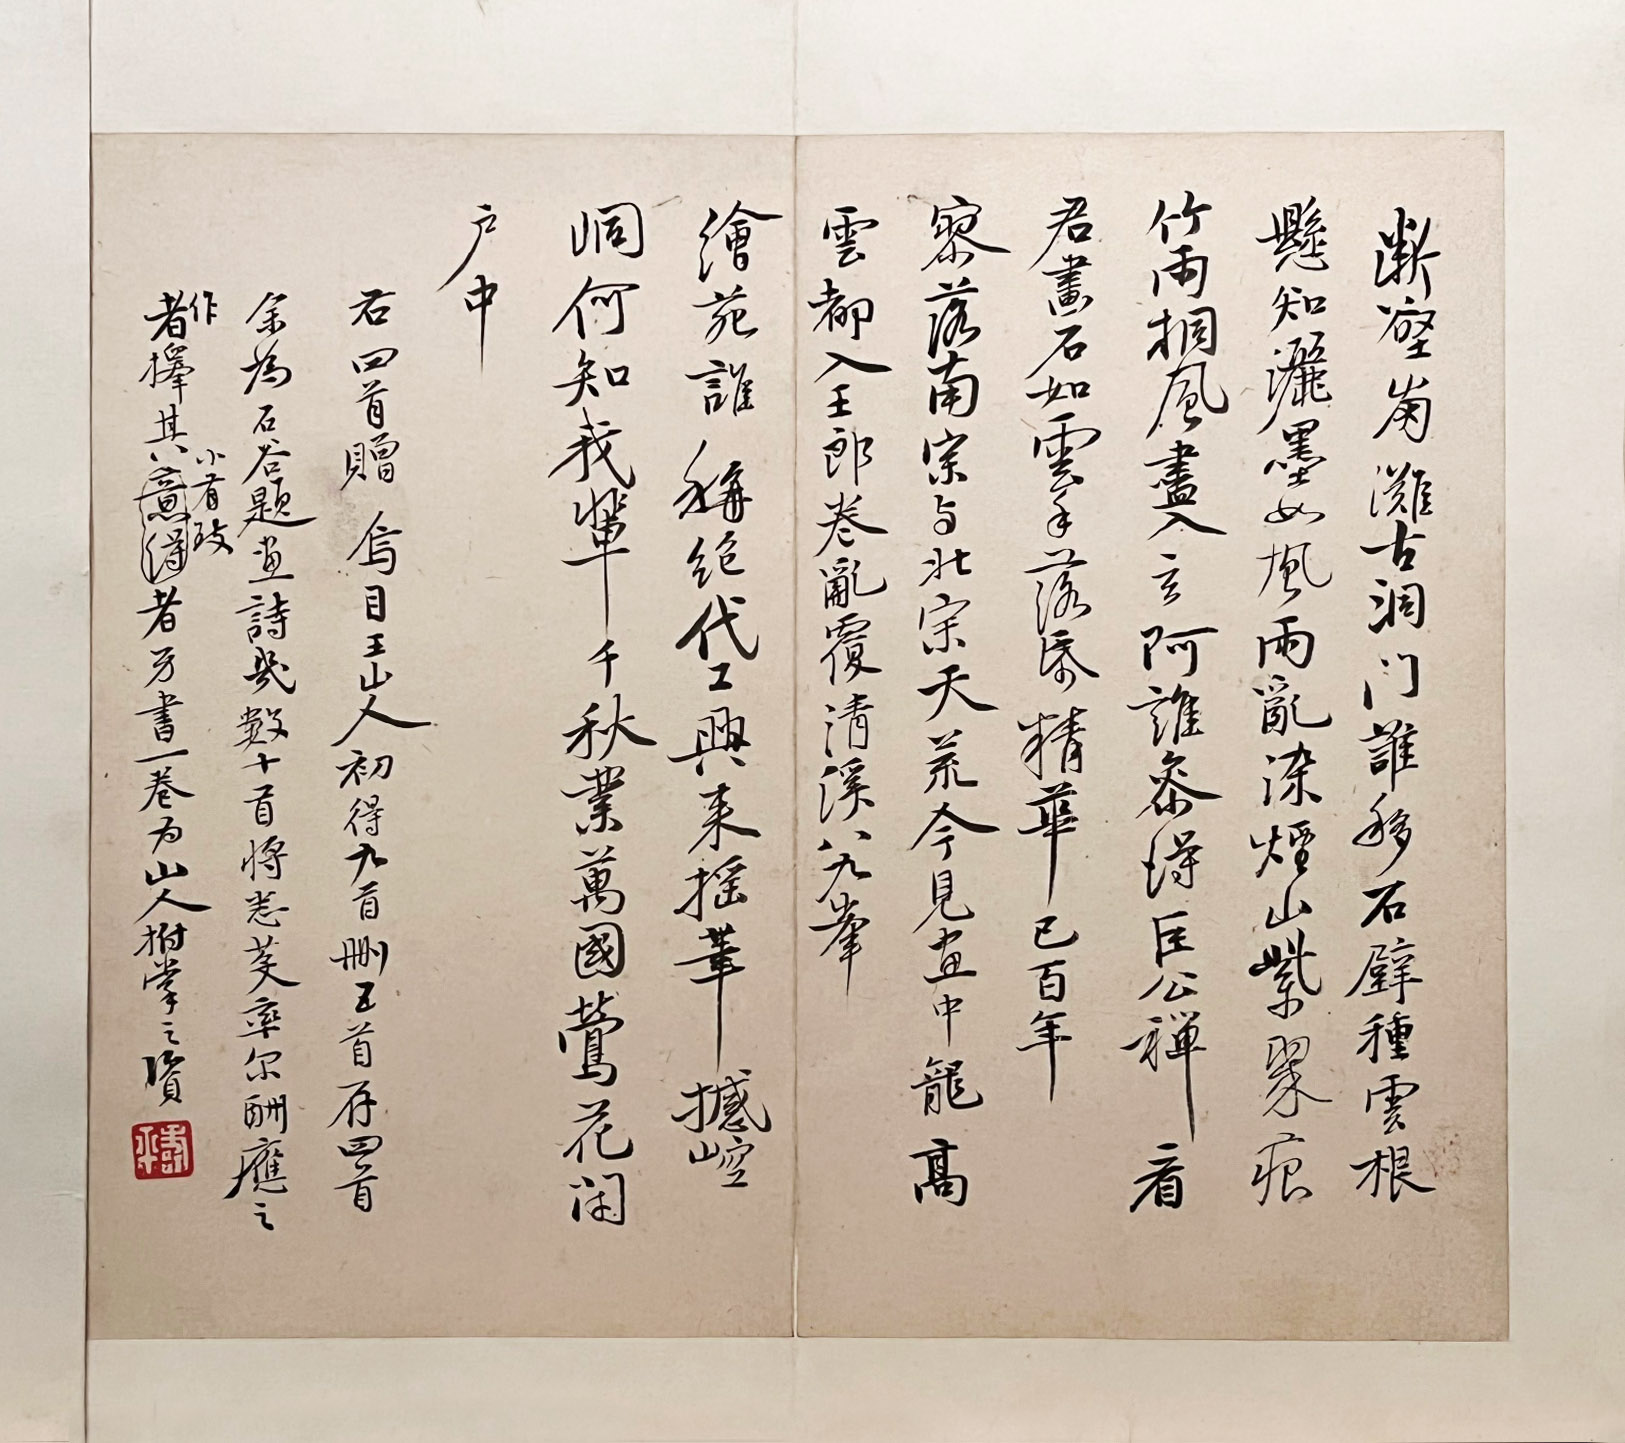 断壁崩灘古洞门誰移石壁種雲根
懸知灑墨如風雨亂染煙山紫翠痕
竹雨桐風盡入玄阿誰参得巨公禅看
君畫石如雲手落落精華已百年
寥落南宗与北宗天荒今見画中龍高
雲都入王郎卷亂覆清溪八九峯
繪苑誰稱絕代工興来摇筆撼崆
峒何知我輩千秋業萬國鶯花閉
户中
右四首贈烏目王山人初得九首刪五首存四首
余為石谷題画詩幾數十首將悉芟率尔酬應之
作
者擇其小有致者另書一卷为山人拊掌之資
壽平